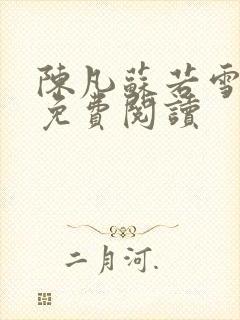 陳凡蘇若雪
免費閱讀
二月河.